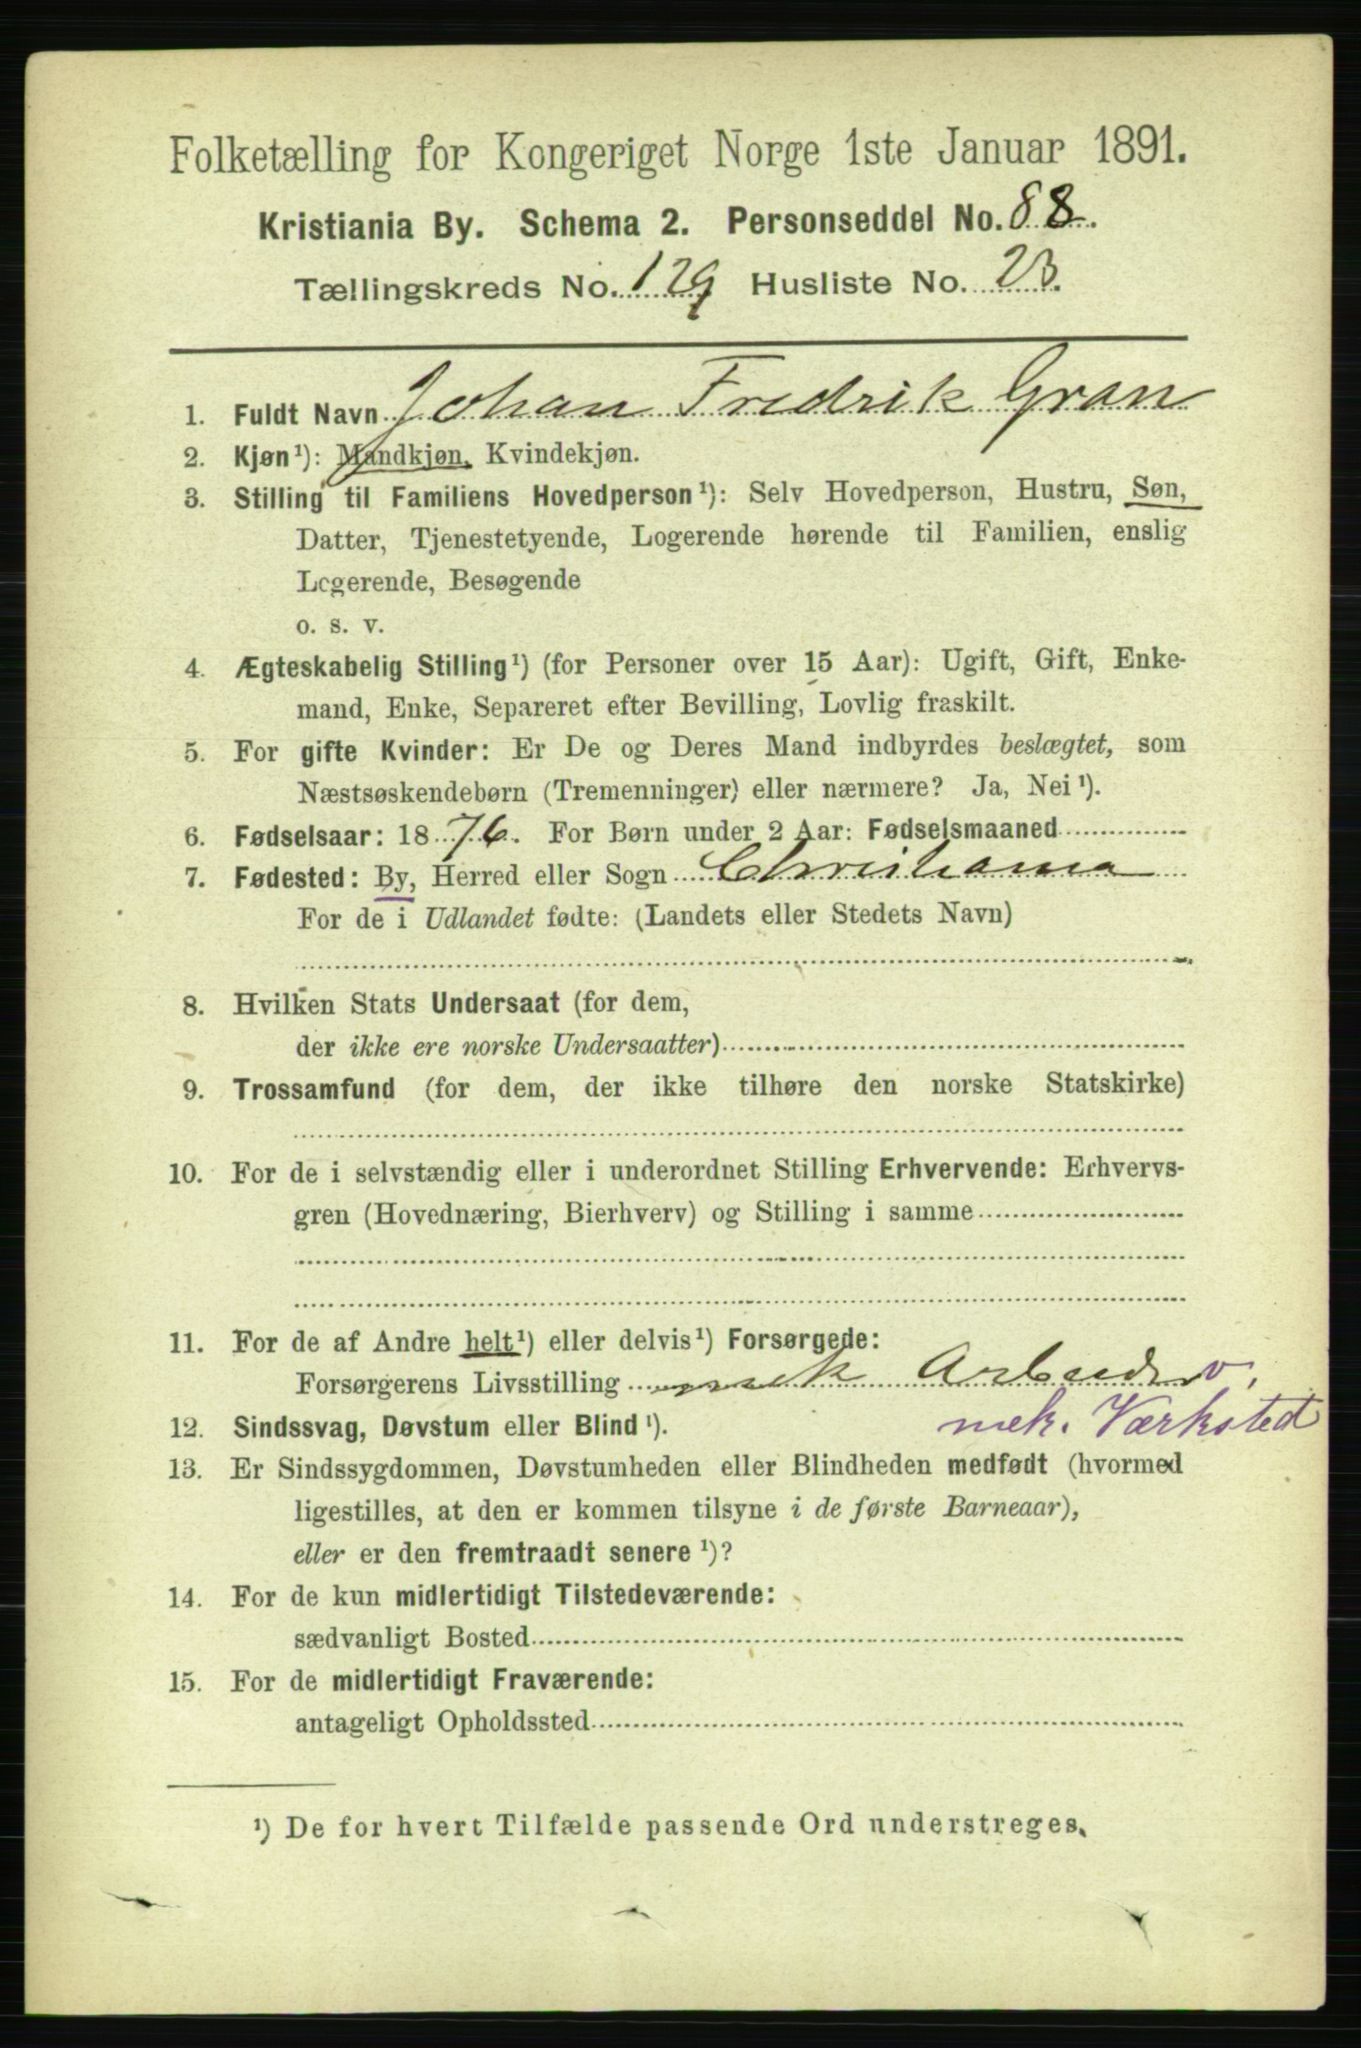 Folketælling for Kongeriget Norge 1ste Januar 1891.
Kristiania By. Schema 2. Personseddel No. 88.
Tællingskreds No. 129 Husliste No. 23.
1. Fuldt Navn Johan Fredrik Gran
2. Kjøn¹): Mandkjøn, Kvindekjøn.
3. Stilling til Familiens Hovedperson¹): Selv Hovedperson, Hustru, Søn,
Datter, Tjenestetyende, Logerende hørende til Familien, enslig
Logerende, Besøgende
o. s. v.
4. Ægteskabelig Stilling¹) (for Personer over 15 Aar): Ugift, Gift, Enke-
mand, Enke, Separeret efter Bevilling, Lovlig fraskilt.
5. For gifte Kvinder: Er De og Deres Mand indbyrdes beslægtet, som
Næstsøskendebørn (Tremenninger) eller nærmere? Ja, Nei¹).
6. Fødselsaar: 1876. For Børn under 2 Aar: Fødselsmaaned
7. Fødested: By, Herred eller Sogn Christiania
For de i Udlandet fødte: (Landets eller Stedets Navn)
8. Hvilken Stats Undersaat (for dem,
der ikke ere norske Undersaatter)
9. Trossamfund (for dem, der ikke tilhøre den norske Statskirke)
10. For de i selvstændig eller i underordnet Stilling Erhvervende: Erhvervs-
gren (Hovednæring, Bierhverv) og Stilling i samme
11. For de af Andre helt¹) eller delvis¹) Forsørgede:
Forsørgerens Livsstilling Arbeider v.
mek. Værksted
12. Sindssvag, Døvstum eller Blind¹).
13. Er Sindssygdommen, Døvstumheden eller Blindheden medfødt (hvormed
ligestilles, at den er kommen tilsyne i de første Barneaar),
eller er den fremtraadt senere¹)?
14. For de kun midlertidigt Tilstedeværende:
sædvanligt Bosted
15. For de midlertidigt Fraværende:
antageligt Opholdssted
¹) De for hvert Tilfælde passende Ord understreges.